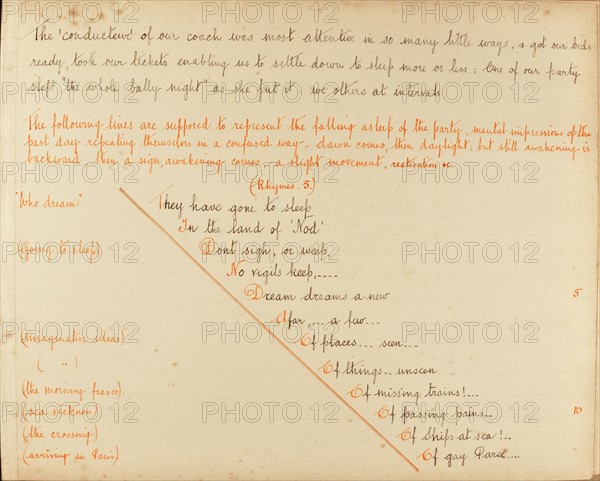 The 'conducteur' of our coach was most attentive in so many little ways, & got our beds
ready, took our tickets enabling us to settle down to sleep more or less: One of our party
slept "the whole bally night" as she put it we others at intervals
The following lines are supposed to represent the falling asleep of the party, mental impressions of the
past day repeating themselves in a confused way - dawn comes, then daylight, but still awakening is
backward then a sign, awakening comes - a slight movement, restoration &c
(Rhymes. 5.)
"Who dream" They have gone to sleep
In the land of 'Nod'
(Going to sleep) Dont sigh, or weep,
No vigils keep,....
Dream dreams a new 5
Afar,... a few...
(imaginative ideas) Of places... seen...
( " ) Of things.. unseen
(the morning fiasco) Of missing trains!...
(sea sickness) Of passing pains.. 10
(the crossing) Of Ships at sea!..
(arriving in Paris) Of gay Paree....
PHOTO 12